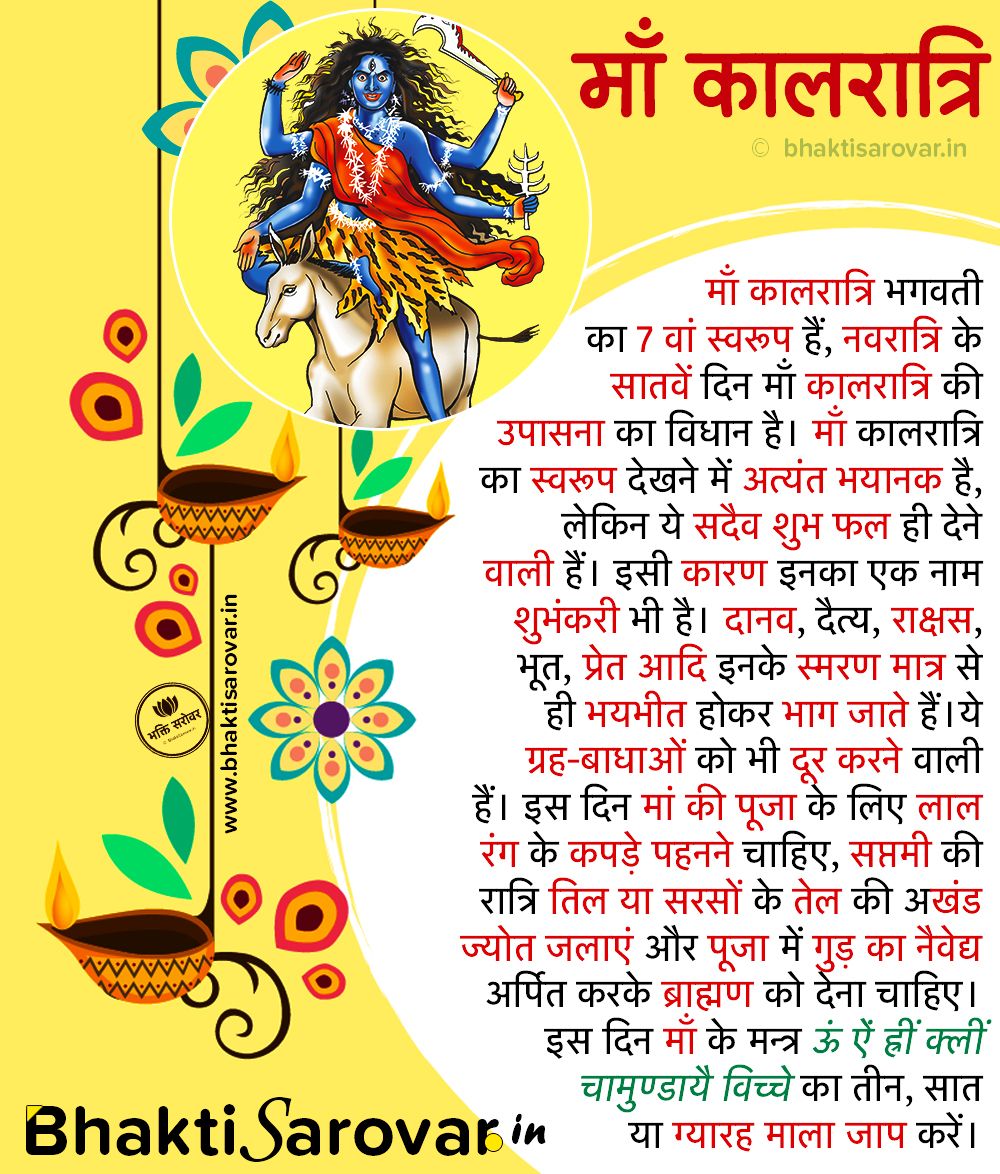 माँ कालरात्रि
© bhaktisarovar.in
माँ कालरात्रि भगवती
का 7 वां स्वरूप हैं, नवरात्रि के
सातवें दिन माँ कालरात्रि की
उपासना का विधान है। माँ कालरात्रि
का स्वरूप देखने में अत्यंत भयानक है,
लेकिन ये सदैव शुभ फल ही देने
वाली हैं। इसी कारण इनका एक नाम
शुभंकरी भी है। दानव, दैत्य, राक्षस,
भूत, प्रेत आदि इनके स्मरण मात्र से
ही भयभीत होकर भाग जाते हैं।ये
ग्रह-बाधाओं को भी दूर करने वाली
हैं। इस दिन मां की पूजा के लिए लाल
रंग के कपड़े पहनने चाहिए, सप्तमी की
रात्रि तिल या सरसों के तेल की अखंड
ज्योत जलाएं और पूजा में गुड़ का नैवेद्य
अर्पित करके ब्राह्मण को देना चाहिए।
इस दिन माँ के मन्त्र ऊं ऐं ह्रीं क्लीं
चामुण्डायै विच्चे का तीन, सात
या ग्यारह माला जाप करें।
www.bhaktisarovar.in
भक्ति सरोवर
BhaktiSarovar.in